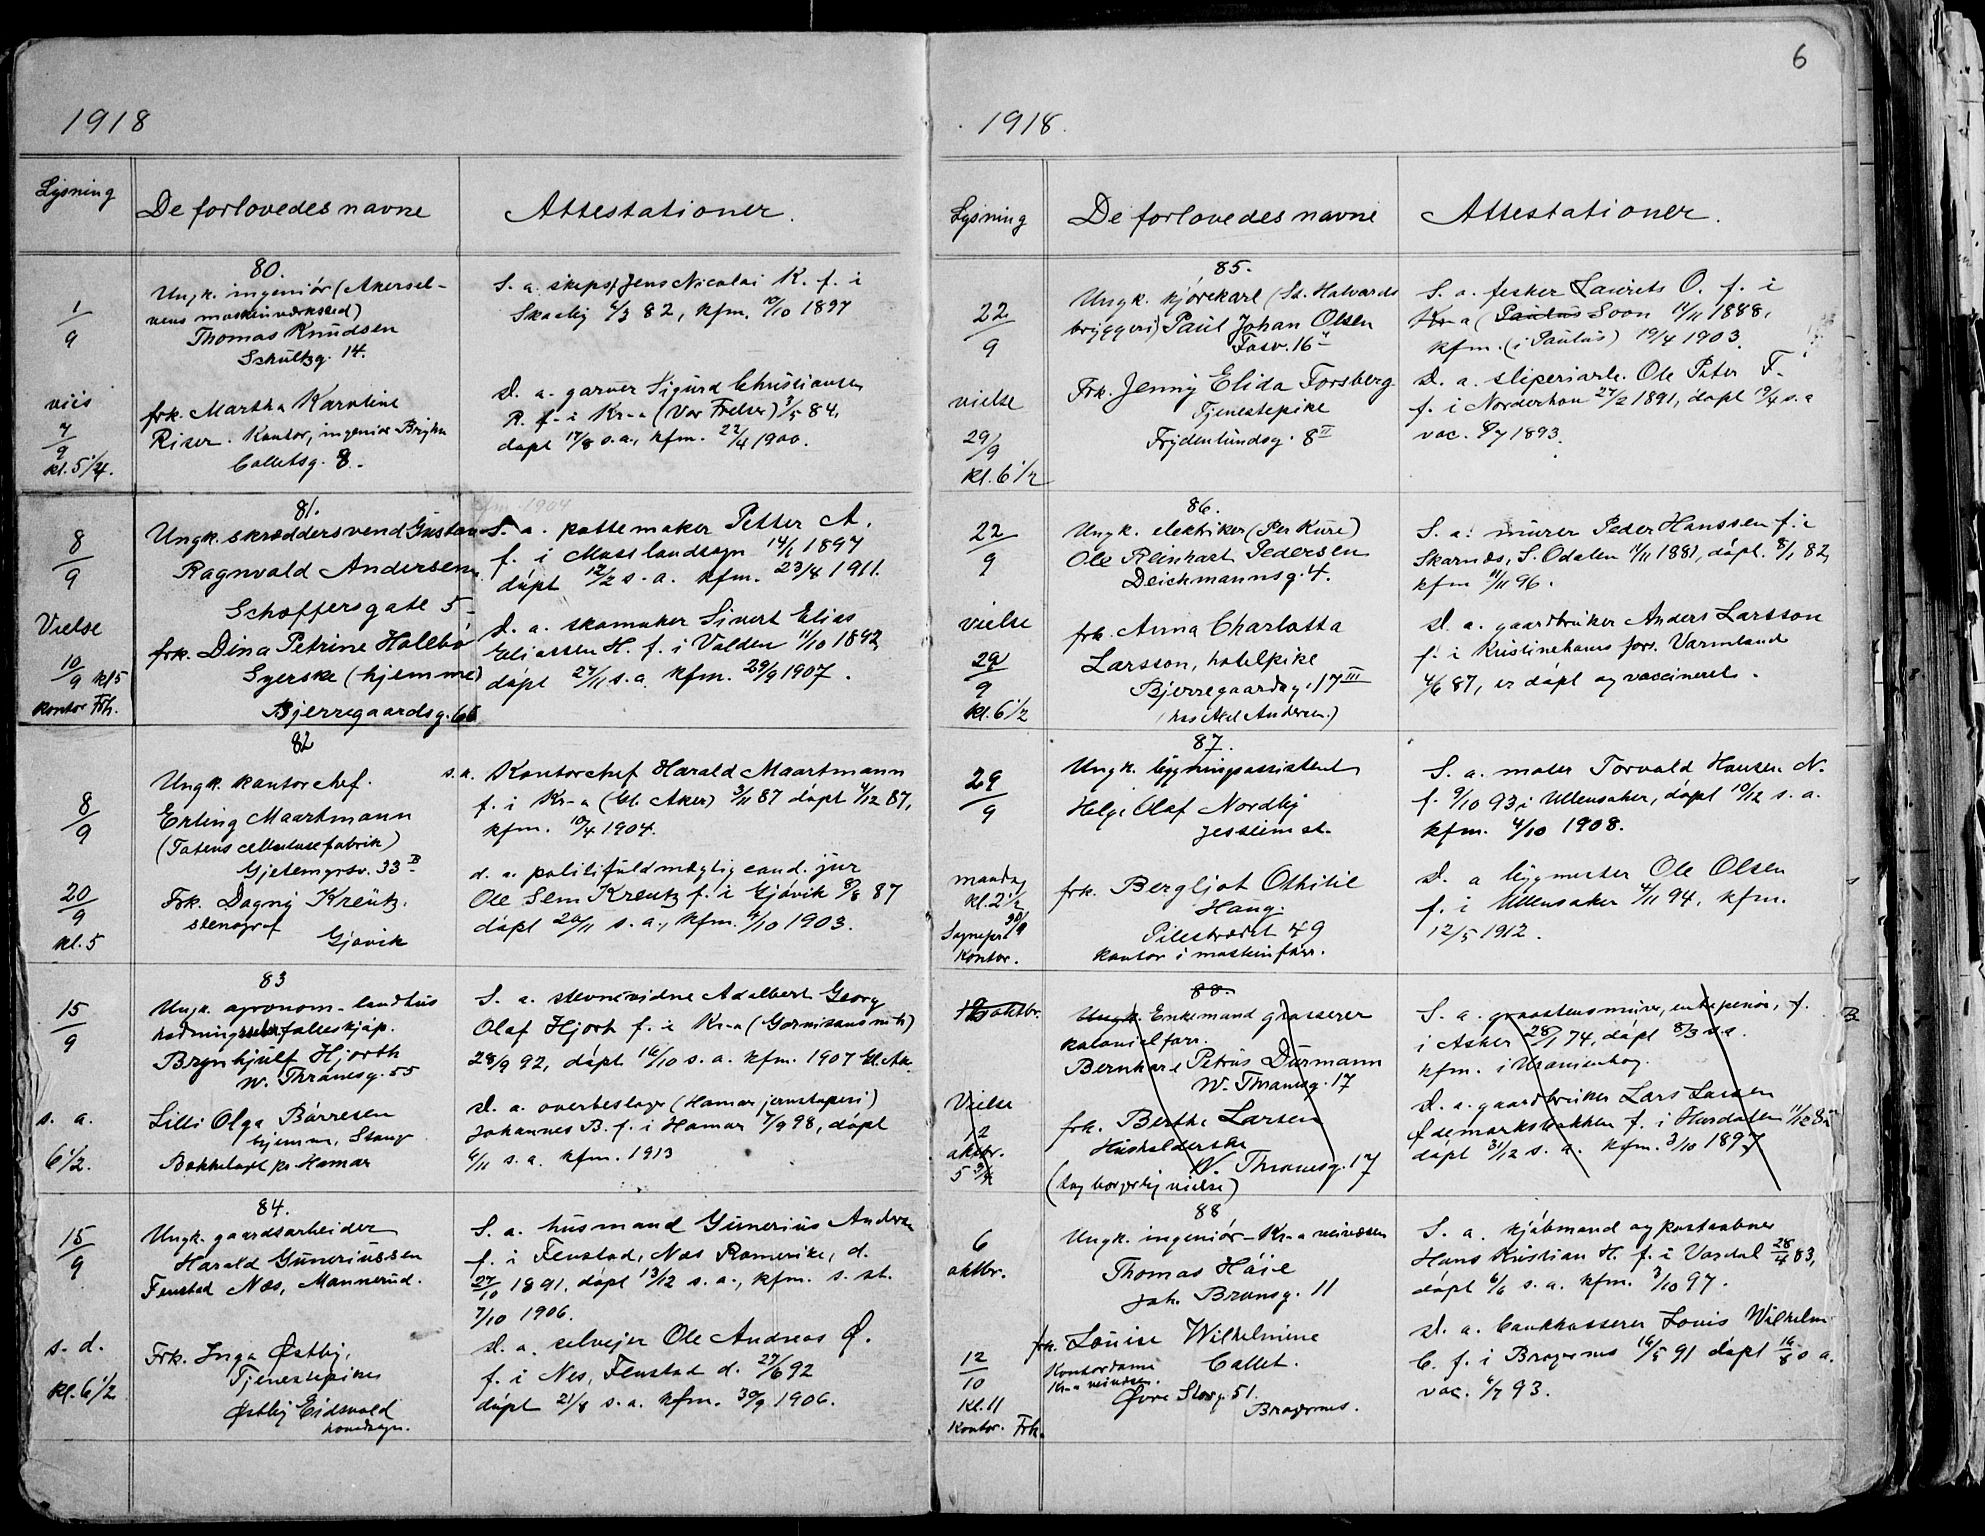 6
1918
Lysning
De forlovedes navne
Attestationer.
80.
1/9
Ungk. ingeniør (Akersel-
vens maskinverksted)
Thomas Knudsen
Schultzg. 14.
S. a. skipsf. Jens Nicolai K. f. i
Skaaby 6/3 82, kfm. 10/10 1897
viet
7/9
kl. 5 1/4.
frk. Martha Karoline
Riser. Kontor, ingeniør Bryhn
Colletsg. 8.
D. a. garver Sigurd Christiansen
R. f. i Kr-a (Vor Frelser) 3/5 84,
døpt 17/8 s.a., kfm. 22/4 1900.
81.
8/9
Ungk. skræddersvend Gustav
Ragnvald Andersen
Schæffersgate 5
kfm. 1904
S. a. pottemaker Petter A.
f. i Moss landsogn 14/1 1897
døpt 12/2 s.a. kfm. 23/4 1911.
Vielse
10/9 kl 5
kontor Frh.
frk. Dina Petrine Hollebø
Syerske (hjemme)
Bjerregaardsg. 66
D. a. skomaker Sivert Elias
Eliassen H. f. i Volden 11/10 1892
døpt 27/11 s.a. kfm. 29/9 1907.
82
8/9
Ungk. kontorchef.
Erling Maartmann
(Totens cellulosefabrik)
Gjetemyrsv. 33 B
s.a. Kontorchef Harald Maartmann
f. i Kr-a (Gl. Aker) 3/11 87 døpt 4/12 87,
kfm. 10/4 1904.
20/9
kl. 5
Frk. Dagny Kreutz.
stenograf
Gjøvik
d. a. politifuldmægtig cand. jur
Ole Sem Kreutz f. i Gjøvik 8/8 87
døpt 20/11 s. a., kfm. 4/10 1903.
83
15/9
Ungk. agronom - landhus
Brynhjulf Hjorth
W. Thranesg. 55
S. a. stevnevidne Adalbert Georg
Olaf Hjort f. i Kr-a (Garnisonsm.)
28/9 92, døpt 16/10 s. a. kfm. 1907 Gl. Ak.
s. a.
6 1/2.
Lilli Olga Børresen
hjemme, Stang
Bekkelaget pr Hamar
D. a. overbeslager (Hamar jernstøperi)
Johannes B. f. i Hamar 7/9 98, døpt
6/11 s. a. kfm. 1913
84.
15/9
Ungk. gaardsarbeider
Harald Gunerius­sen
Fenstad Nes, Mannerud.
S. a. husmand Gunerius Andersen
f. i Fenstad, Nes Romerike, d.
27/10 1891, døpt 13/12 s. a., kfm. s. st.
7/10 1906.
s. d.
kl. 6 1/2
Frk. Inga Østby,
Tjenestepike
Østby Eidsvold
hovedsogn.
D. a. selveier Ole Andreas Ø.
f. i Nes, Fenstad d. 27/6 92
døpt 21/8 s. a. kfm. 30/9 1906.
1918.
Lysning
De forlovedes navne
Attestationer.
85.
22/9
Ungk. kjørekarl (St. Halvards
bryggeri) Paul Johan Olsen
Fosv. 16 I
S. a. fisker Laurits O. f. i
Kr-a (Paulus Soon 11/11 1888,
kfm. (i Paulus) 19/4 1903.
vielse
29/9
kl. 6 1/2
Frk. Jenny Elida Forsberg
Tjenestepike
Frydenlundsg. 8 II
D. a. sliperiarb. Ole Peter F.
f. i Norderhov 27/2 1891, døpt 19/4 s. a
vac. 8/7 1893.
86.
22/9
Ungk. elektriker (Per Kure)
Ole Reinhart Pedersen
Deichmannsg. 4.
S. a. murer Peder Hanssen f. i
Skarnæs, S. Odalen 7/11 1881, døpt 8/1 82,
kfm 11/11 96.
vielse
29/9
kl. 6 1/2
frk. Anna Charlotta
Larsson, hotelpike
Bjerregaardsg. 17 III
(hos Axel Andersen.)
D. a. gaardbruker Anders Larsson
f. i Kristinehamns fors. Varmland
4/6 87, er døpt og vaccinert.
87.
29/9
Ungk. bygningsassistent
Helge Olaf Nordby
Jessheim st.
S. a. maler Torvald Hansen N.
f. 9/10 93 i Ullensaker, døpt 10/12 s. a.
kfm. 4/10 1908.
mandag
kl. 2 1/2
30/9
Sognepr.
kontor.
frk. Bergljot Othilie
Haug.
Pilestrædet 49
kontor i maskinforr.
D. a bygmester Ole Olsen
f. i Ullensaker 4/11 94, kfm.
12/5 1912.
88.
oktbr.
Ungk. Enkemand grosserer
kolonialforr.
Bernhard Petrus Durmann
W. Thranesg. 17
S. a. graastensmurer, entrepenør, f.
i Asker 28/1 74, døpt 8/3 s.a.
kfm. i Uranienborg
Vielse
12
oktbr.
5 3/4
frk. Berthe Larsen
Husholderske
W. Thranesg. 17
(tog borgerlig vielse)
D. a. gaardbruker Lars Larsen
Ødemarksbakken f. i Hurdalen 11/12
døpt 31/12 s. a. kfm. 3/10 1897
88
6
oktbr.
Ungk. ingeniør - Kr-a veivæsen
Thomas Høie
Joh. Brunsg. 11
S. a. kjøbmand og postaabner
Hans Kristian H. f. i Vardal 28/4 83,
døpt 6/6 s. a. kfm. 3/10 97.
12/10
kl. 11
kontor. Frh.
frk. Louise Wilhelmine
Collet.
Kontordame
Kr-a veivæsen.
Øvre Storg. 51.
Bragernes.
D. a. bankkasserer Louis Wilhelm
C. f. i Bragernes 16/5 91 døpt 16/8 s a.
vac. 6/7 93.